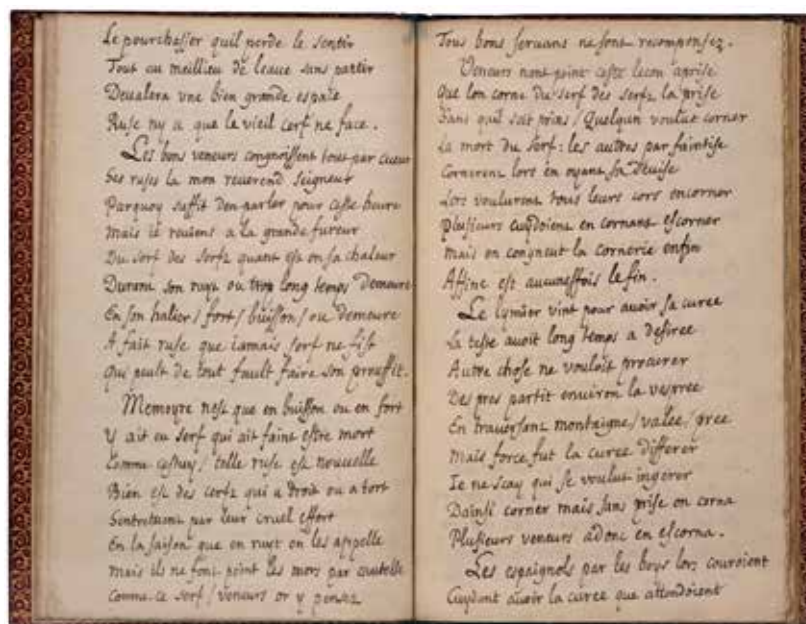 Le pourchasser quil perde le sentir
Tout au meillieu de leaue sans partir
Deualera vne bien grande espace
Ruse ny a que le vieil cerf ne face .
Les bons veneurs congnoissent tout par cueur
Ses ruses la mon reuerend seigneur
Parquoy suffit den parler pour ceste heure
Mais ie reuiens a la grande fureur
Du serf des serfz quant est en sa chaleur
Durant son ruyt ou trop long temps demeure
En son halier / fort / buisson / ou demeure
A fait ruse que iamais serf ne fist
Qui peult de tout fault faire son prouffit .
Memoyre nest que en buisson ou en fort
Y ait eu serf qui ait faint estre mort
Comme cestuy / telle ruse est nouuelle
Bien est des cerfz qui a droit ou a tort
Sentretuent par leur cruel effort
En la saison que en ruyt on les appelle
Mais ilz ne font point les mors par cautelle
Comme ce serf / veneurs or y pensez
Tous bons seruans ne sont recompensez .
Veneurs nont point ceste lecon aprise
Que lon corne du serf des serfz la prise
Sans quil soit prins / Quelqun voulut corner
La mort du serf : les autres par faintise
Cornerent lors en oyant sa deuise
Lors voulurent tous leurs cors encorner
Plusieurs cuydoient en cornant escorner
Mais on congneut la cornerie enfin
Affine est aucunesfois le fin .
Le lymier vint pour auoir sa curee
La teste auoit long temps a desiree
Autre chose ne vouloit procurer
Des pres partit enuiron la vespree
En trauersant montaigne / valee / pree
Mais force fut la curee differer
Ie ne scay qui se voulut ingerer
Dainsi corner mais sans prise on corna
Plusieurs veneurs adonc en escorna .
Les espaignols par les boys lors couroient
Cuydant auoir la curee que attendoient